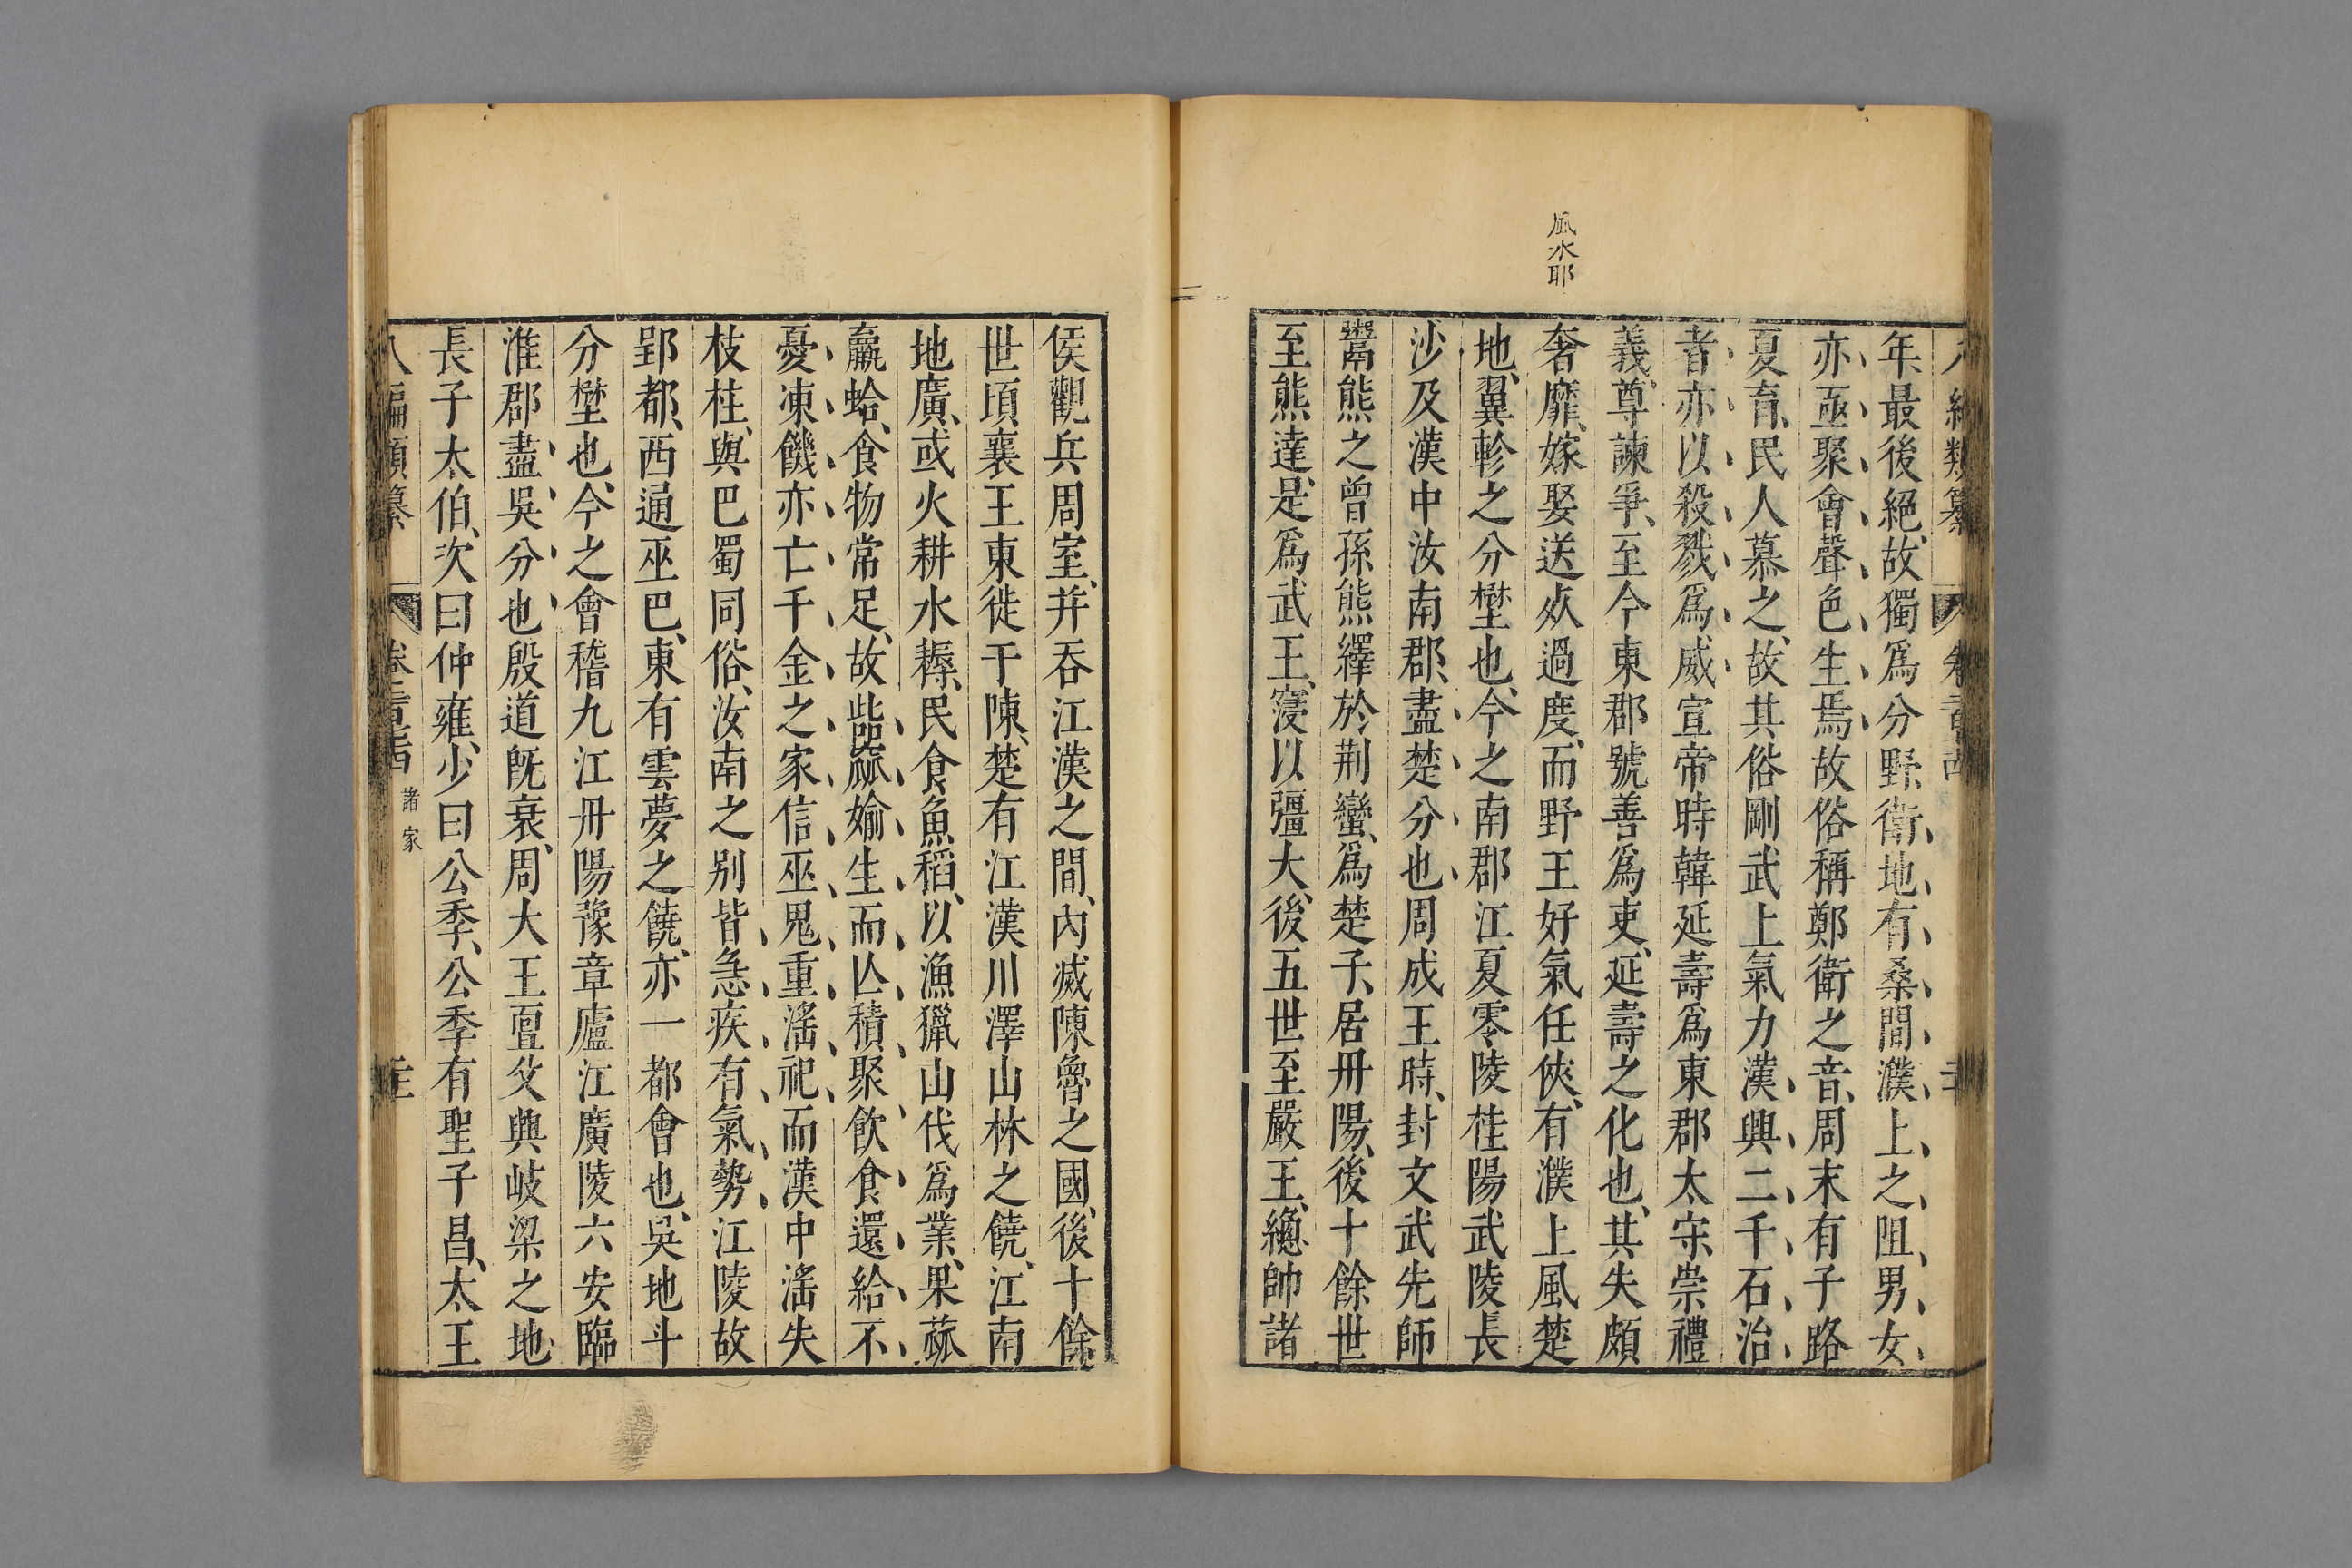 風水耶
年最後絕故獨爲分野衛地有桑間濮上之阻男女
亦亟聚會聲色生焉故俗稱鄭衛之音周末有子路
夏育民人慕之故其俗剛武上氣力漢興二千石治
者亦以殺戮爲威宣帝時韓延壽爲東郡太守崇禮
義尊諫爭至今東郡號善爲吏延壽之化也其失頗
奢靡嫁娶送死過度而野王好氣任俠有濮上風楚
地翼軫之分壄也今之南郡江夏零陵桂陽武陵長
沙及漢中汝南郡盡楚分也周成王時封文武先師
鬻熊之曾孫熊繹於荆蠻爲楚子居丹陽後十餘世
至熊達是爲武王寖以彊大後五世至嚴王總帥諸
侯觀兵周室并吞江漢之間內滅陳魯之國後十餘
世頃襄王東徙于陳楚有江漢川澤山林之饒江南
地廣或火耕水耨民食魚稻以漁獵山伐爲業果蓏
蠃蛤食物常足故啙窳媮生而亡積聚飲食還給不
憂凍饑亦亡千金之家信巫鬼重滛祀而漢中滛失
枝柱與巴蜀同俗汝南之别皆急疾有氣勢江陵故
郢都西通巫巴東有雲夢之饒亦一都會也吳地斗
分壄也今之會稽九江丹陽豫章廬江廣陵六安臨
淮郡盡吳分也殷道旣衰周大王亶父興岐梁之地
長子太伯次曰仲雍少曰公季公季有聖子昌太王
八編類纂
諸家